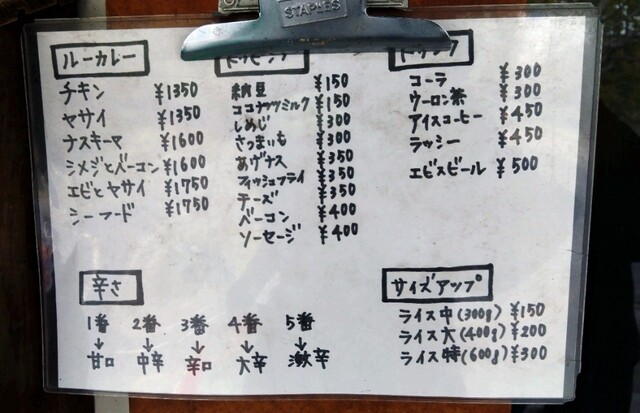 STAPLES
ルーカレー
チキン ¥1350
ヤサイ ¥1350
ナスキーマ ¥1600
シメジとベーコン ¥1600
エビとヤサイ ¥1750
シーフード ¥1750
トッピング
納豆 ¥150
ココナッツミルク ¥150
しめじ ¥300
さつまいも ¥300
あげナス ¥350
フィッシュフライ ¥350
チーズ ¥350
ベーコン ¥400
ソーセージ ¥400
ドリンク
コーラ ¥300
ウーロン茶 ¥300
アイスコーヒー ¥450
ラッシー ¥450
エビスビール ¥500
辛さ
1番 2番 3番 4番 5番
↓ ↓ ↓ ↓ ↓
甘口 中辛 辛口 大辛 激辛
サイズアップ
ライス中(300g) ¥150
ライス大(400g) ¥200
ライス特(600g) ¥300